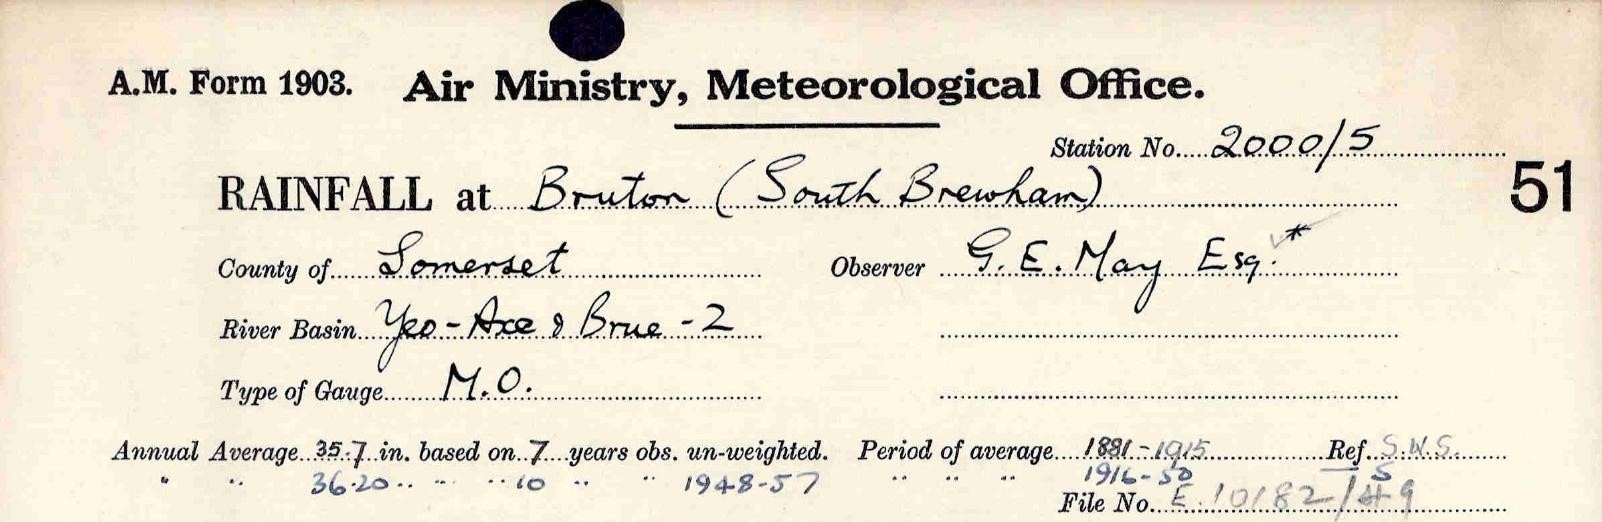 A.M. Form 1903. Air Ministry, Meteorological Office.
Station No. 2000/5
RAINFALL at Bruton (South Brewham)
51
County of Somerset Observer G. E. May Esq. *
River Basin Yeo-Axe & Brue - 2
Type of Gauge M.O.
Annual Average 35.7 in. based on 7 years obs. un-weighted. Period of average 1881-1915 Ref. S.W.S.
" " 36.20 " " " 10 " " 1948-57 " " " 1916-50 S
File No. E.10182/49